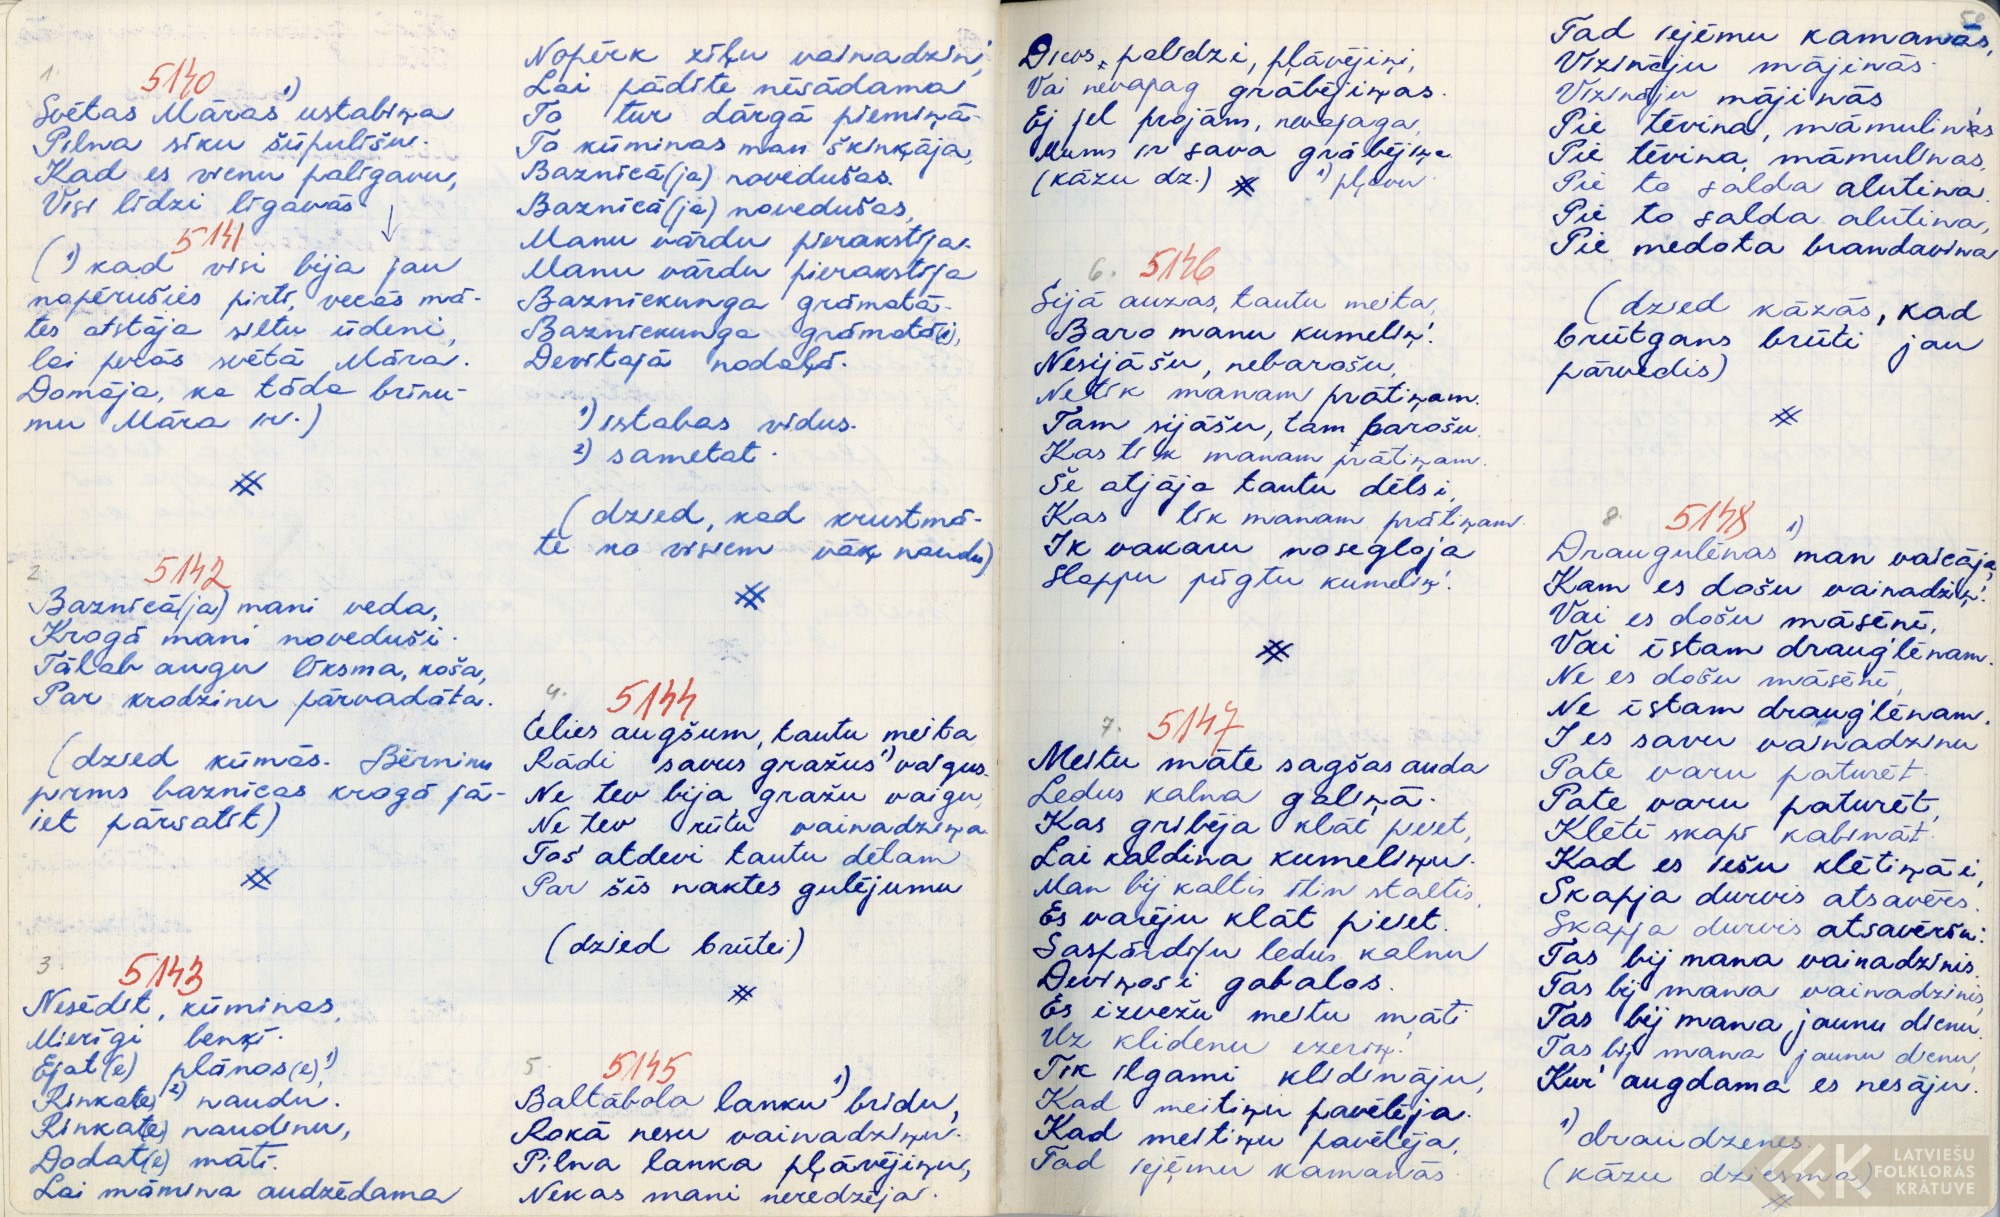 1.
5140
Svētas Māras ¹) ustabiņa
Pilna sīku šūpulīšu.
Kad es vienu palīgavu,
Visi līdzi līgavās
5141
(¹) kad visi bija jau
nopērušies pirtī, vecās mā-
tes atstāja siltu ūdeni,
lai peras svētā Māra.
Domāja, ka tāda brīnu-
mu Māra ir.)
2.
5142
Baznīcā(ja) mani veda,
Krogā mani noveduši.
Tālab augu līksma, koša,
Par krodzinu pārvadāta.
(dzied kūmās. Bērninu
pirms baznīcas krogā jā-
iet pārsatīt)
3.
5143
Nesēdit, kūminas,
Mierīgi benķī.
Ejat(e) plānas(e) ¹)
Rinkate) ²) naudu.
Rinkat(e) naudinu,
Dodat(e) māti.
Lai māmina audzēdama
Nopērk zīļu vainadziņi,
Lai pādīte nēsādama
To tur dārgā piemiņā.
To kūminas man škinķāja,
Baznīcā(ja) novedušas.
Baznīcā(ja) novedušas,
Manu vārdu pierakstīja.
Manu vārdu pierakstīja
Baznīckunga grāmatā.
Baznīckunga grāmatā(i),
Devītajā nodaļā.
¹) istabas vidus.
²) sametat.
(dzied, kad krustmā-
te no visiem vāķ naudu)
4.
5144
Celies augšum, tautu meita
Rādi savus gražus ¹) vaigus.
Ne tev bija gražu vaigu,
Ne tev rūtu vainadziņa
Tos' atdevi tautu dēlam
Par šīs naktes gulējumu
(dzied brūtei)
5.
5145
Baltābola lanku ¹) bridu,
Rokā nesu vainadziņu.
Pilna lanka pļāvējiņu,
Nekas mani neredzēja.
Dievs palīdzi, pļāvējiņi,
Vai nevajag grābējiņas.
Ej jel projām, nevajaga,
Mums ir sava grābējiņa.
(kāzu dz.) ¹) pļavu
6.
5146
Sijā auzas, tautu meita,
Baro manu kumeliņ'.
Nesijāšu, nebarošu,
Netīk manam prātiņam.
Tam sijāšu, tam barošu
Kas tīk manam prātiņam.
Še atjāja tautu dēlsi,
Kas tīk manam prātiņam.
Ik vakaru nosegloja
Slappu pūgtu kumeliņ'.
7.
5147
Meitu māte sagšas auda
Ledus kalna galiņā.
Kas gribēja klāt pieiet,
Lai kaldina kumeliņu.
Man bij kaltis itin staltis,
Es varēju klāt pieiet.
Saspārdīju ledus kalnu
Deviņosi gabalos.
Es izvežu meitu māti
Uz klidenu ezeriņ'.
Tik ilgami klidināju,
Kad meitiņu pavēlēja.
Kad meitiņu pavēlēja,
Tad iejēmu kamanās.
50
Tad iejēmu kamanās,
Vizināju mājinās.
Vizināju mājinās
Pie tēvina, māmulinas
Pie tēvina, māmulinas,
Pie ta salda alutina.
Pie ta salda alutina,
Pie medota brandavina
(dzied kāzās, kad
brūtgans brūti jau
pārvedis)
8.
5148
Draugulēnas ¹) man vaicāja,
Kam es došu vainadziņ'.
Vai es došu māsēnē,
Vai īstam drauglēnam.
Ne es došu māsēnē,
Ne īstam drauglēnam.
I es savu vainadzinu
Pate varu paturēt.
Pate varu paturēt,
Klētī skapī kabināt.
Kad es iešu klētiņāi,
Skapja durvis atsavērs.
Skapja durvis atsavērši:
Tas bij mana vainadzinis,
Tas bij mana vainadzinis
Tas bij mana jaunu dienu.
Tas bij mana jaunu dienu,
Kur' augdama es nesāju.
¹) draudzenes.
(kāzu dziesma)
LATVIEŠU
FOLKLORAS
KRĀTUVE